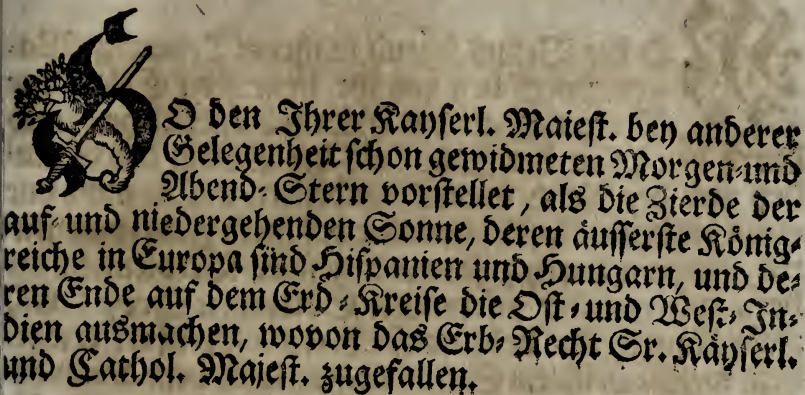 SO den Ihrer Kayserl. Maiest. bey anderer
Gelegenheit schon gewidmeten Morgen-und
Abend-Stern vorstellet, als die Zierde der
auf-und niedergehenden Sonne, deren äusserste König-
reiche in Europa sind Hispanien und Hungarn, und de-
ren Ende auf dem Erd-Kreise die Ost-und West-In-
dien ausmachen, wovon das Erb-Recht Sr. Käyserl.
und Cathol. Majest. zugefallen.